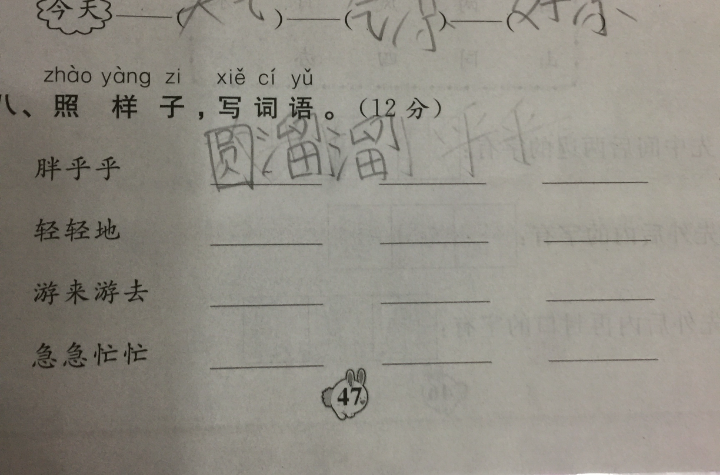 今天——(天气)——(气)——(好)
zhào yàng zi xiě cí yǔ
八、照 样 子,写 词 语。(12分)
胖乎乎 圆溜溜
轻轻地
游来游去
急急忙忙
47